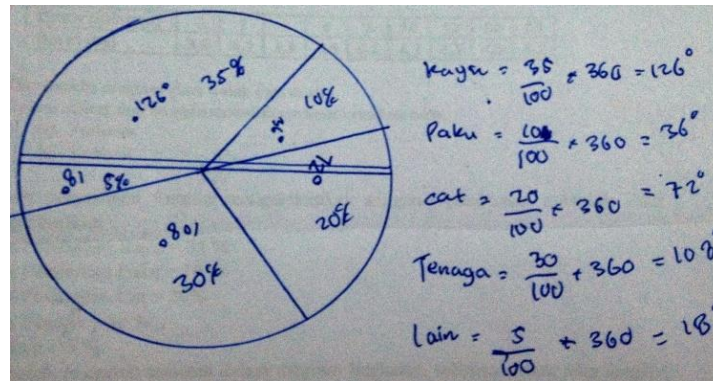 35%
126°
10%
36
18°
5%
72°
20%
108°
30%
Kayu = 35/100 × 360 = 126°
Paku = 10/100 × 360 = 36°
cat = 20/100 × 360 = 72°
Tenaga = 30/100 × 360 = 108°
lain = 5/100 × 360 = 18°